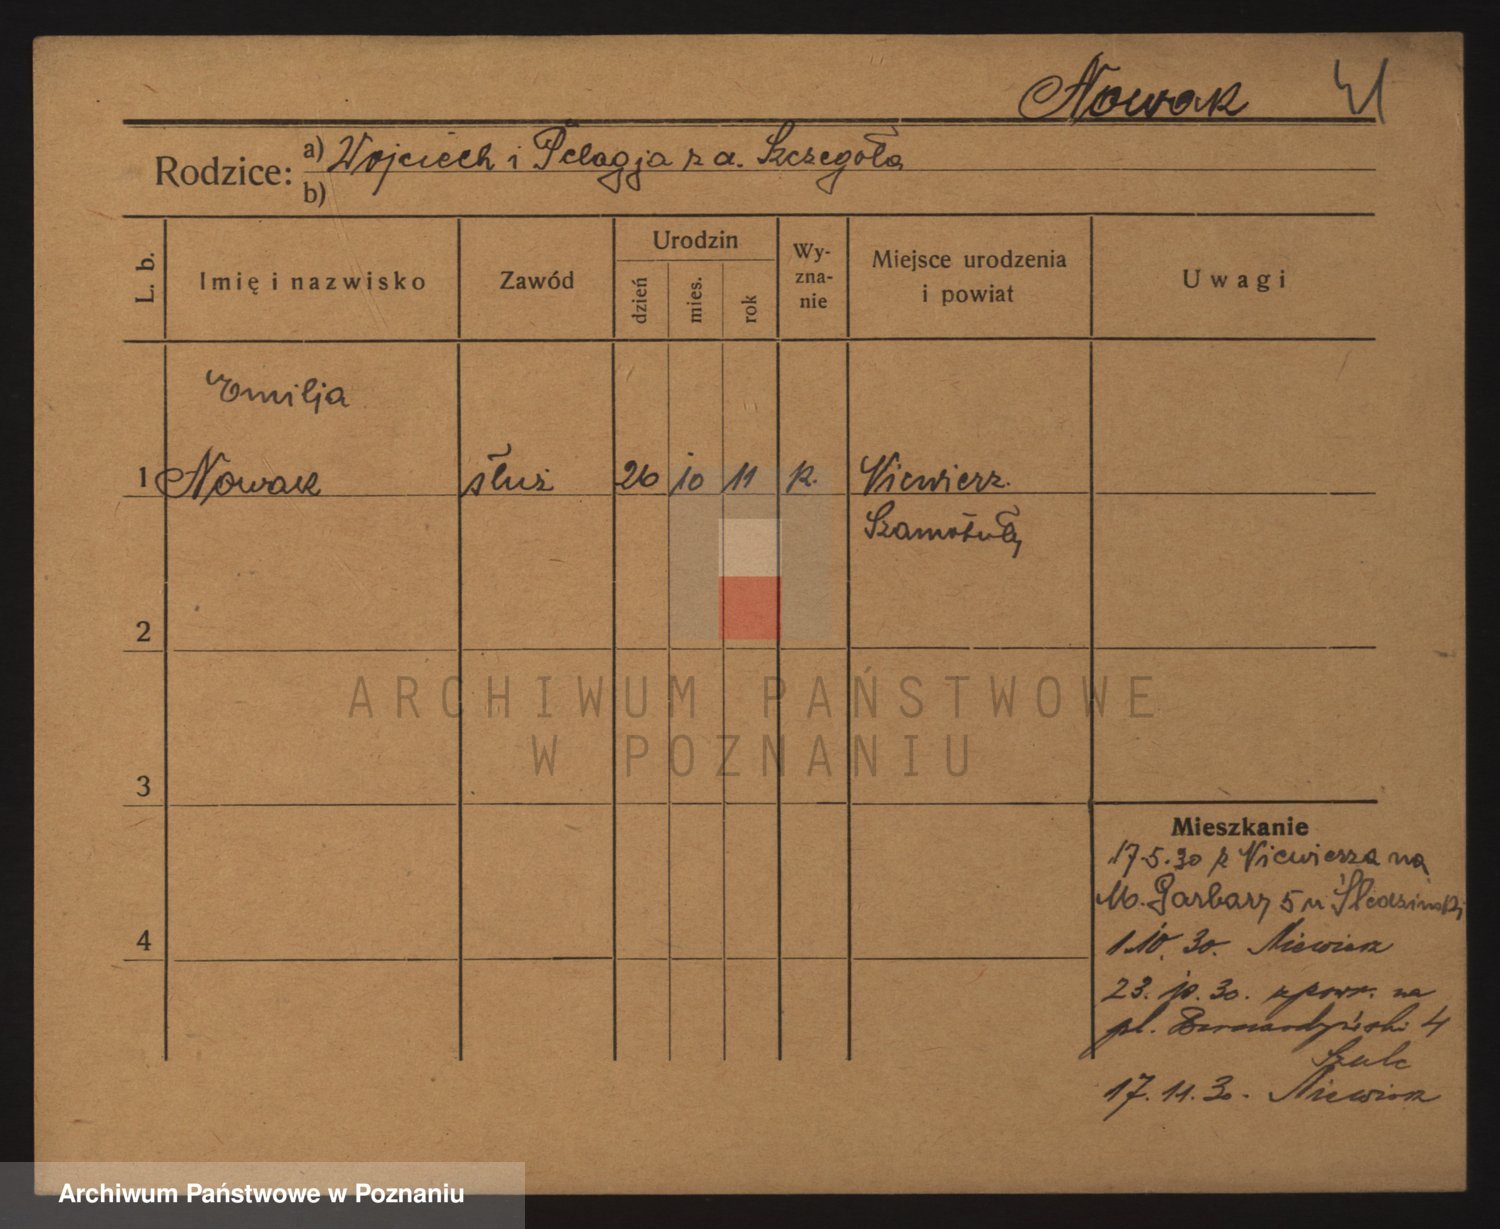 Nowak 41
Rodzice: a) Wojciech i Pelagja z d. Szczegoła
b)
L. b.
Imię i nazwisko
Zawód
Urodzin
dzień
mies.
rok
Wy-
zna-
nie
Miejsce urodzenia
i powiat
Uwagi
Emilja
1 Nowak służ 26 10 11 k. Niewierz.
Szamotuły
2
ARCHIWUM PAŃSTWOWE
W POZNANIU
3
4
Mieszkanie
17.5.30 z Niewierza na
M. Garbary 5 u Śledzinski
1.10.30. Niewierz
23.10.30. z powr. na
pl. Bernardyński 4
Szulc
17.11.30. Niewierz
Archiwum Państwowe w Poznaniu